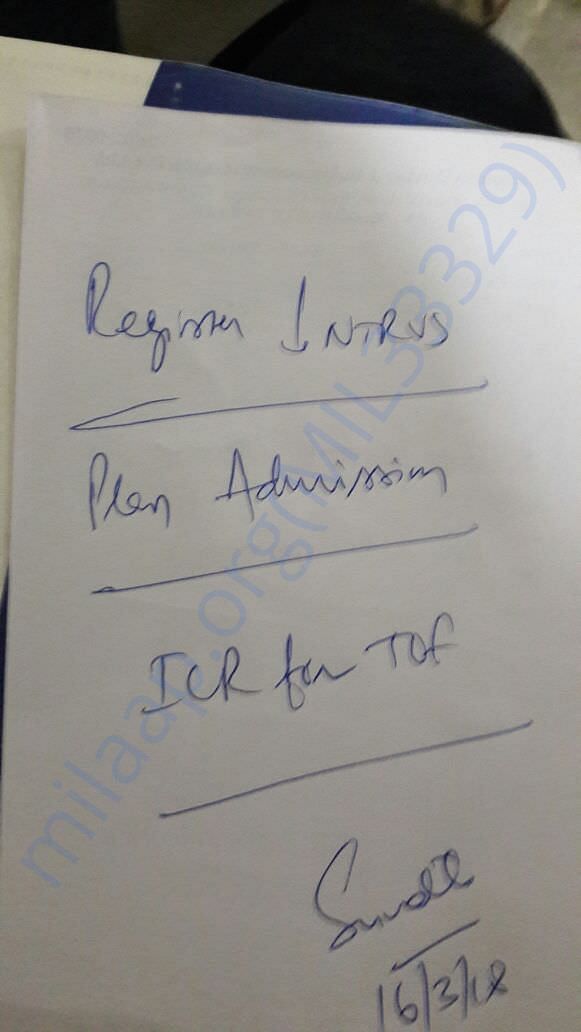 Register ↓ NTRVS
Plan Admission
ICR for TOF
16/3/18
milaap.org(MIL333329)